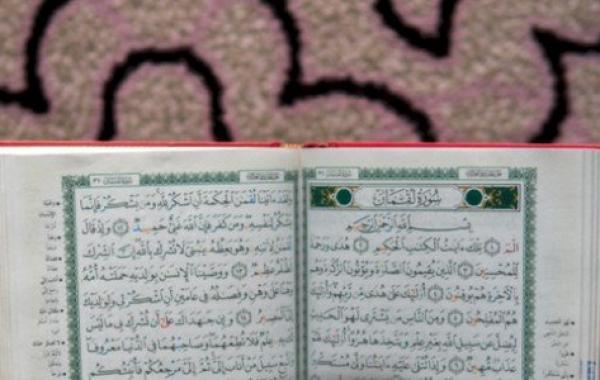 سُورَةُ لُقْمَان
بِسْمِ اللَّهِ الرَّحْمَٰنِ الرَّحِيمِ
الٓمٓ ١ تِلْكَ ءَايَٰتُ الْكِتَٰبِ الْحَكِيمِ ٢ هُدًى وَرَحْمَةً
لِّلْمُحْسِنِينَ ٣ الَّذِينَ يُقِيمُونَ الصَّلَوٰةَ وَيُؤْتُونَ الزَّكَوٰةَ وَهُم
بِالْأَخِرَةِ هُمْ يُوقِنُونَ ٤ أُوْلَٰٓئِكَ عَلَىٰ هُدًى مِّن رَّبِّهِمْ وَأُوْلَٰٓئِكَ
هُمُ الْمُفْلِحُونَ ٥ وَمِنَ النَّاسِ مَن يَشْتَرِى لَهْوَ الْحَدِيثِ
لِيُضِلَّ عَن سَبِيلِ اللَّهِ بِغَيْرِ عِلْمٍ وَيَتَّخِذَهَا هُزُوًا أُوْلَٰٓئِكَ لَهُمْ
عَذَابٌ مُّهِينٌ ٦ وَإِذَا تُتْلَىٰ عَلَيْهِ ءَايَٰتُنَا وَلَّىٰ مُسْتَكْبِرًا
وَلَقَدْ ءَاتَيْنَا لُقْمَٰنَ الْحِكْمَةَ أَنِ اشْكُرْ لِلَّهِ وَمَن يَشْكُرْ فَإِنَّمَا
يَشْكُرُ لِنَفْسِهِ وَمَن كَفَرَ فَإِنَّ اللَّهَ غَنِىٌّ حَمِيدٌ ١٢ وَإِذْ قَالَ
لُقْمَٰنُ لِابْنِهِ وَهُوَ يَعِظُهُ يَٰبُنَىَّ لَا تُشْرِكْ بِاللَّهِ إِنَّ الشِّرْكَ
لَظُلْمٌ عَظِيمٌ ١٣ وَوَصَّيْنَا الْإِنسَٰنَ بِوَٰلِدَيْهِ حَمَلَتْهُ أُمُّهُ
وَهْنًا عَلَىٰ وَهْنٍ وَفِصَٰلُهُ فِى عَامَيْنِ أَنِ اشْكُرْ لِى وَلِوَٰلِدَيْكَ
إِلَىَّ الْمَصِيرُ ١٤ وَإِن جَٰهَدَاكَ عَلَىٰٓ أَن تُشْرِكَ بِى مَا لَيْسَ
لَكَ بِهِ عِلْمٌ فَلَا تُطِعْهُمَا وَصَاحِبْهُمَا فِى الدُّنْيَا مَعْرُوفًا
وَاتَّبِعْ سَبِيلَ مَنْ أَنَابَ إِلَىَّ ثُمَّ إِلَىَّ مَرْجِعُكُمْ فَأُنَبِّئُكُم